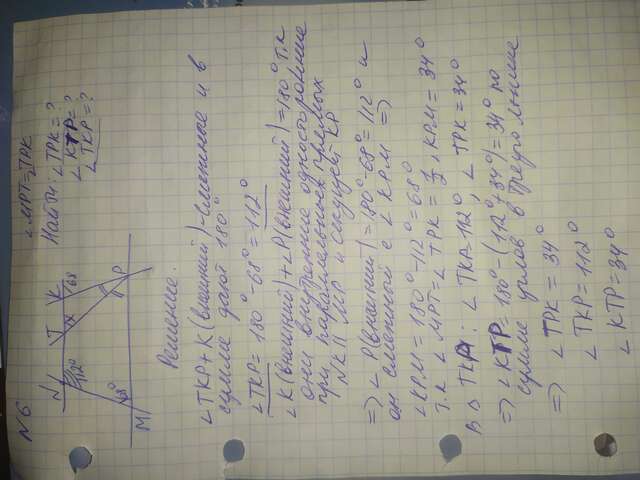 N6
∠MPT=∠TPK
Найти: ∠TPK=?
∠KTP=?
∠TKP=?
N
T
K
68
x
P
112°
68°
M
Решение.
∠TKP+K(внешний)-смежные и в
сумме дают 180°
∠TKP=180°-68°=112°
∠K(внешний)+∠P(внешний)=180° т.к
они внутренние односторонние
при параллельных прямых
NK || MP и секущей KP
=> ∠P(внешний)=180°-68°=112° и
он смежный с ∠KPM =>
∠KPM=180°-112°=68°
т.к ∠MPT=∠TPK=½, KPM=34°
В Δ TKP: ∠TKP=112°, ∠TPK=34°
=> ∠KTP=180°-(112°+34°)=34° по
сумме углов в треугольнике
=> ∠TPK=34°
∠TKP=112°
∠KTP=34°